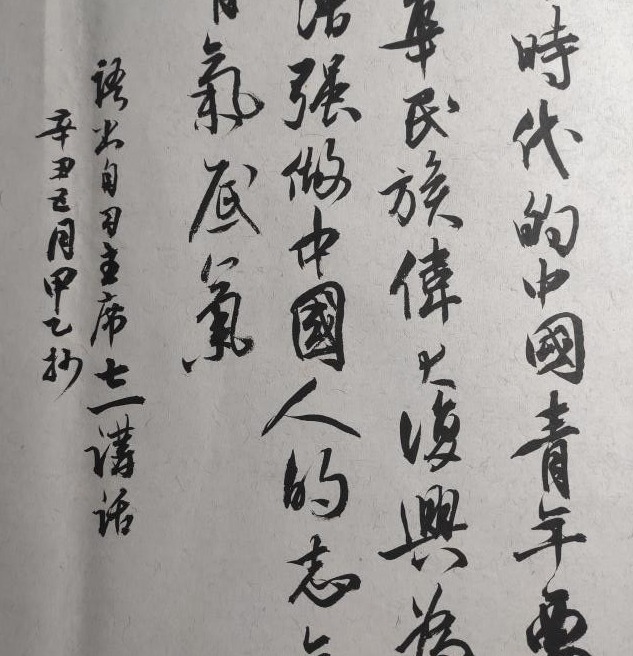 時代的中國青年要
華民族偉大復興為
强做中國人的志
氣底氣
語出自习主席七一講話
辛丑五月甲乙抄